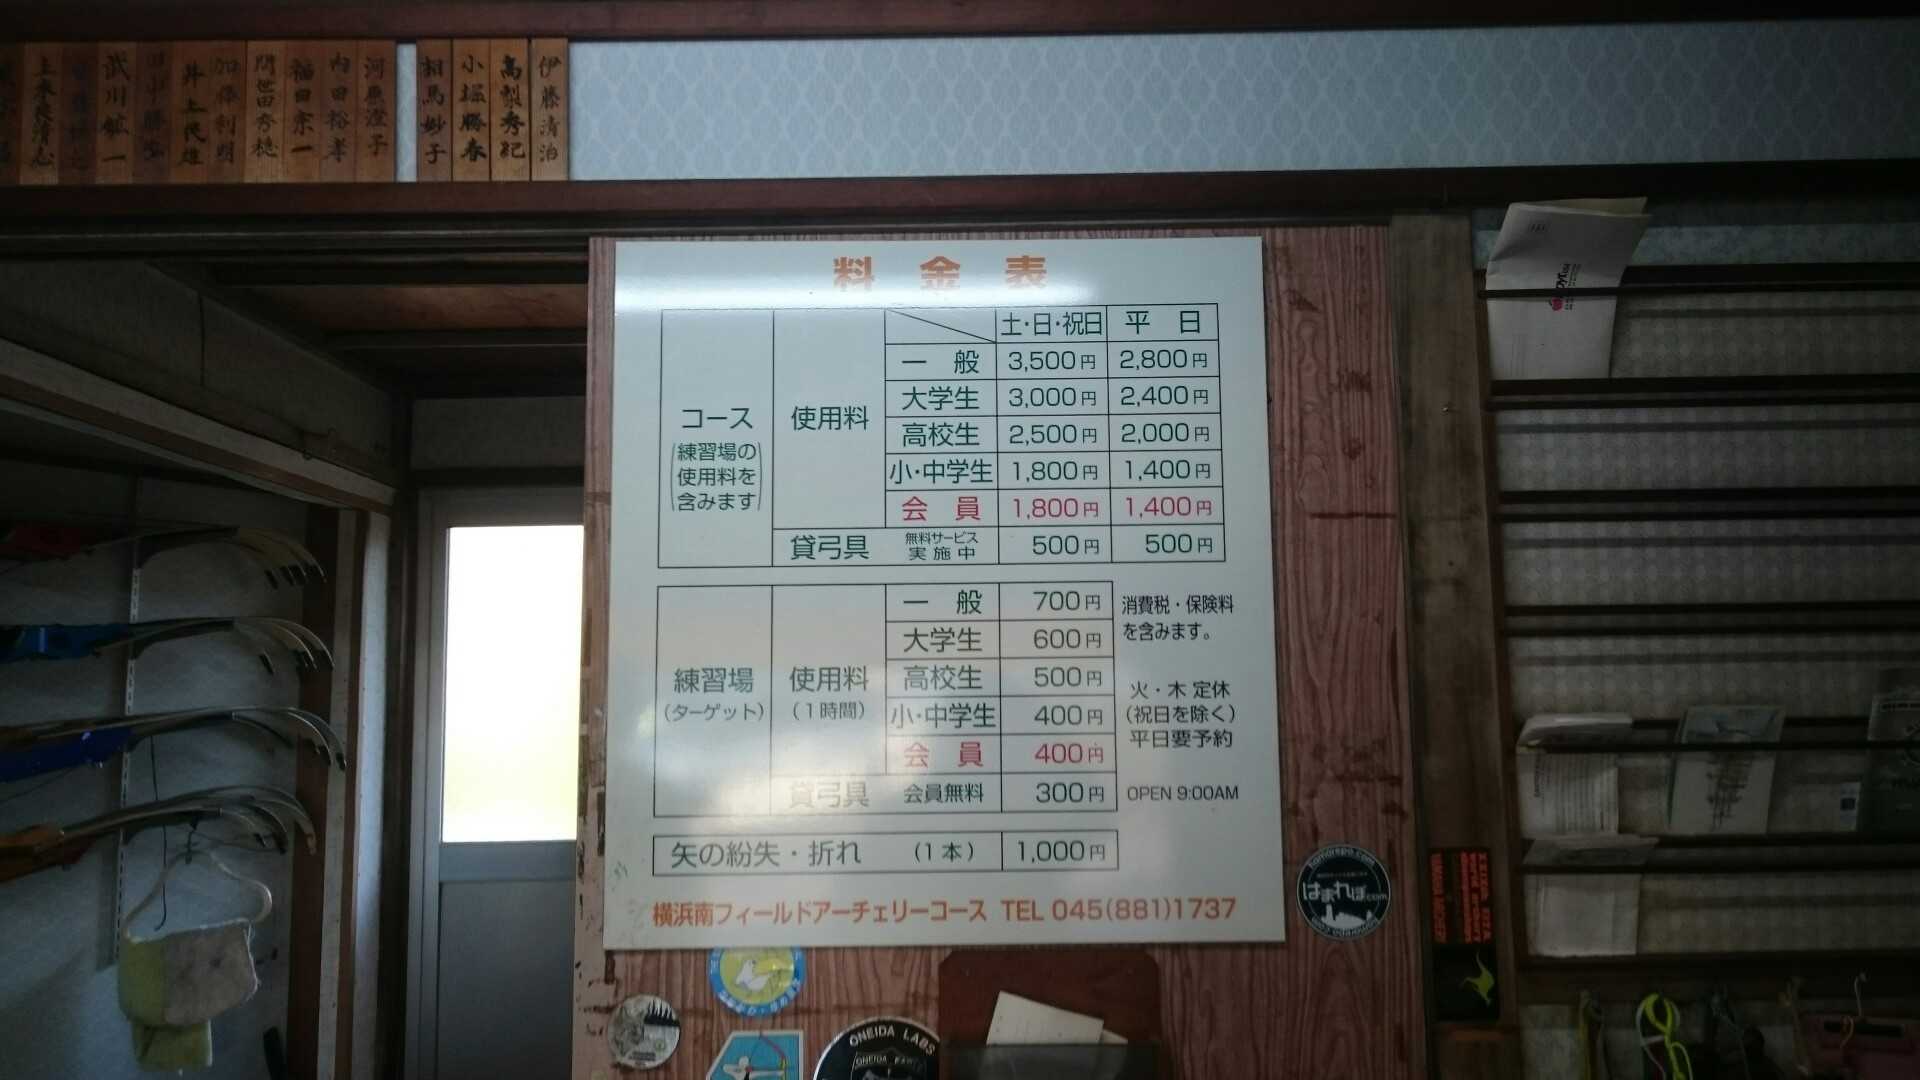 武川鉱一
井上民雄
加藤利明
間世田秀穂
福田宗一
内田裕孝
河原澄子
相馬妙子
小堀勝春
高梨秀紀
伊藤清治
料金表
土・日・祝日 平日
コース
(練習場の
使用料を
含みます)
使用料
一般 3,500円 2,800円
大学生 3,000円 2,400円
高校生 2,500円 2,000円
小・中学生 1,800円 1,400円
会員 1,800円 1,400円
貸弓具 無料サービス実施中 500円 500円
練習場
(ターゲット)
使用料
(1時間)
一般 700円
大学生 600円
高校生 500円
小・中学生 400円
会員 400円
貸弓具 会員無料 300円
消費税・保険料
を含みます。
火・木 定休
(祝日を除く)
平日要予約
OPEN 9:00AM
矢の紛失・折れ (1本) 1,000円
横浜南フィールドアーチェリーコース TEL 045(881)1737
hamarepo.com
はまれぽ.com
ONEIDA LABS